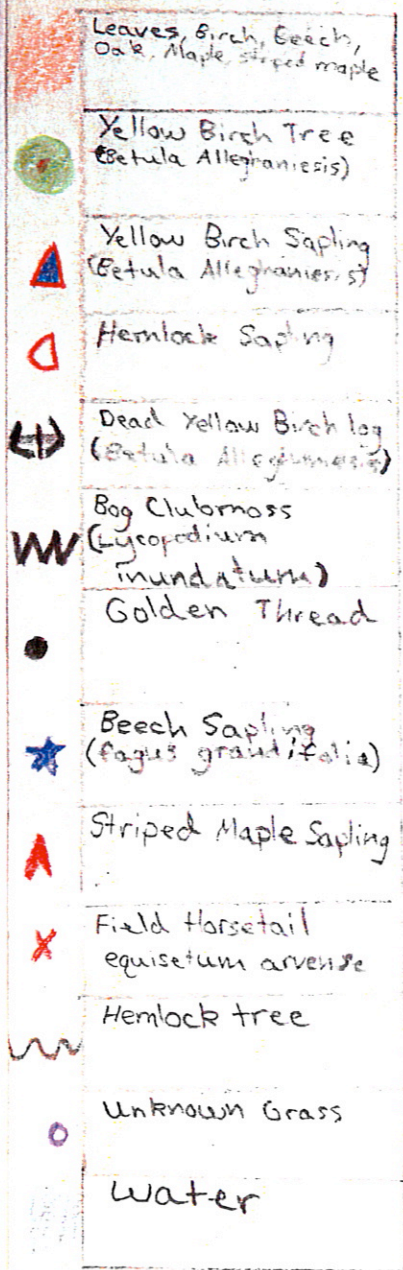 Leaves, Birch, Beech,
Oak, Maple, striped maple
Yellow Birch Tree
(Betula Alleghaniesis)
Yellow Birch Sapling
(Betula Alleghaniesis)
Hemlock Sapling
Dead Yellow Birch log
(Betula Alleghaniesis)
Bog Clubmoss
(Lycopodium
inundatum)
Golden Thread
Beech Sapling
(fagus grandifolia)
Striped Maple Sapling
Field Horsetail
equisetum arvense
Hemlock tree
Unknown Grass
Water